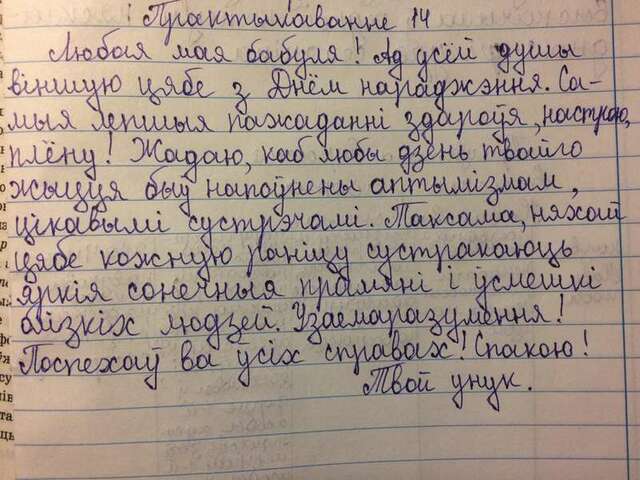 Практыкаванне 14
Любая мая бабуля! Ад усёй душы
віншую цябе з Днём нараджэння. Са-
мыя лепшыя пажаданні здароўя, настрою,
плёну! Жадаю, каб любы дзень твайго
жыцця быў напоўнены аптымізмам,
цікавымі сустрэчамі. Таксама, няхай
цябе кожную раніцу сустракаюць
яркія сонечныя прамяні і ўсмешкі
блізкіх людзей. Узаемаразумення!
Поспехаў ва ўсіх справах! Спакою!
Твой унук.